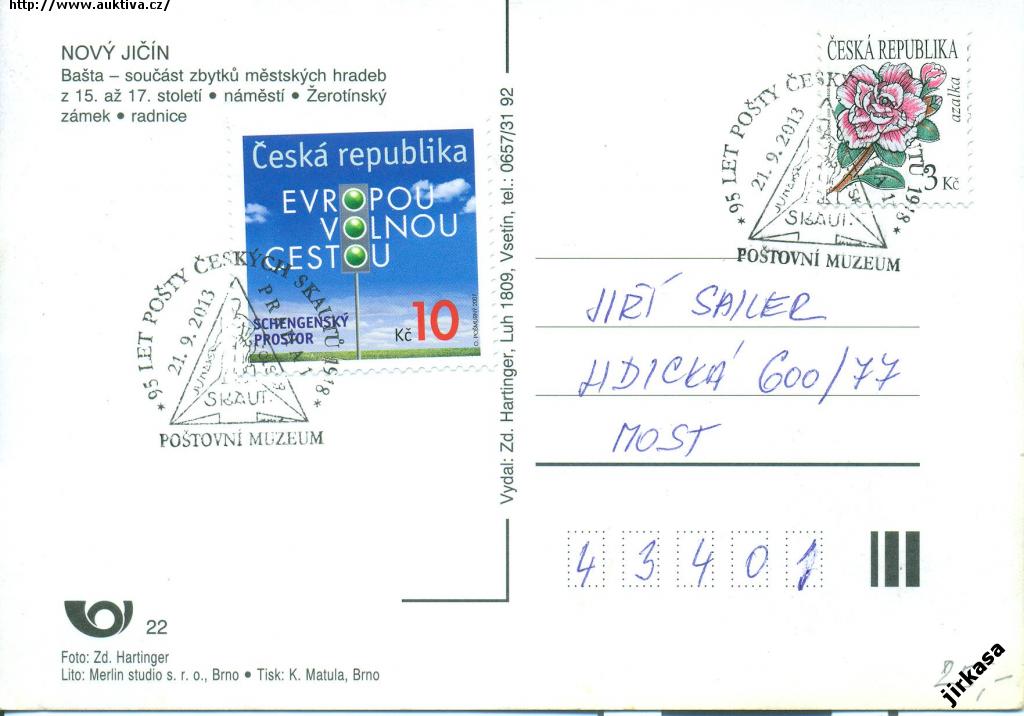 http://www.auktiva.cz/
NOVÝ JIČÍN
Bašta – součást zbytků městských hradeb
z 15. až 17. století • náměstí • Žerotínský
zámek • radnice
Česká republika
EVROPOU
VOLNOU
CESTOU
SCHENGENSKÝ
PROSTOR
Kč 10
* 95 LET POŠTY ČESKÝCH SKAUTŮ 1918 *
21. 9. 2013
PRAHA 1
SKAUT.
POŠTOVNÍ MUZEUM
Vydal: Zd. Hartinger, Luh 1809, Vsetín, tel.: 0657/31 92
ČESKÁ REPUBLIKA
azalka
3 Kč
* 95 LET POŠTY ČESKÝCH SKAUTŮ 1918 *
21. 9. 2013
SKAUT.
POŠTOVNÍ MUZEUM
JIŘÍ SAILER
LIDICKÁ 600/77
MOST
43401
22
Foto: Zd. Hartinger
Lito: Merlin studio s. r. o., Brno • Tisk: K. Matula, Brno
jirkasa